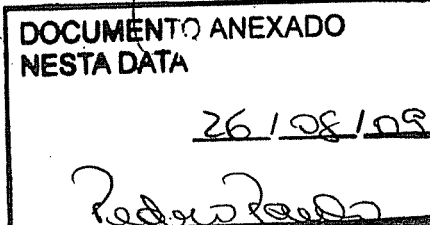 DOCUMENTO ANEXADO
NESTA DATA
26/08/09
Pedro Paulo